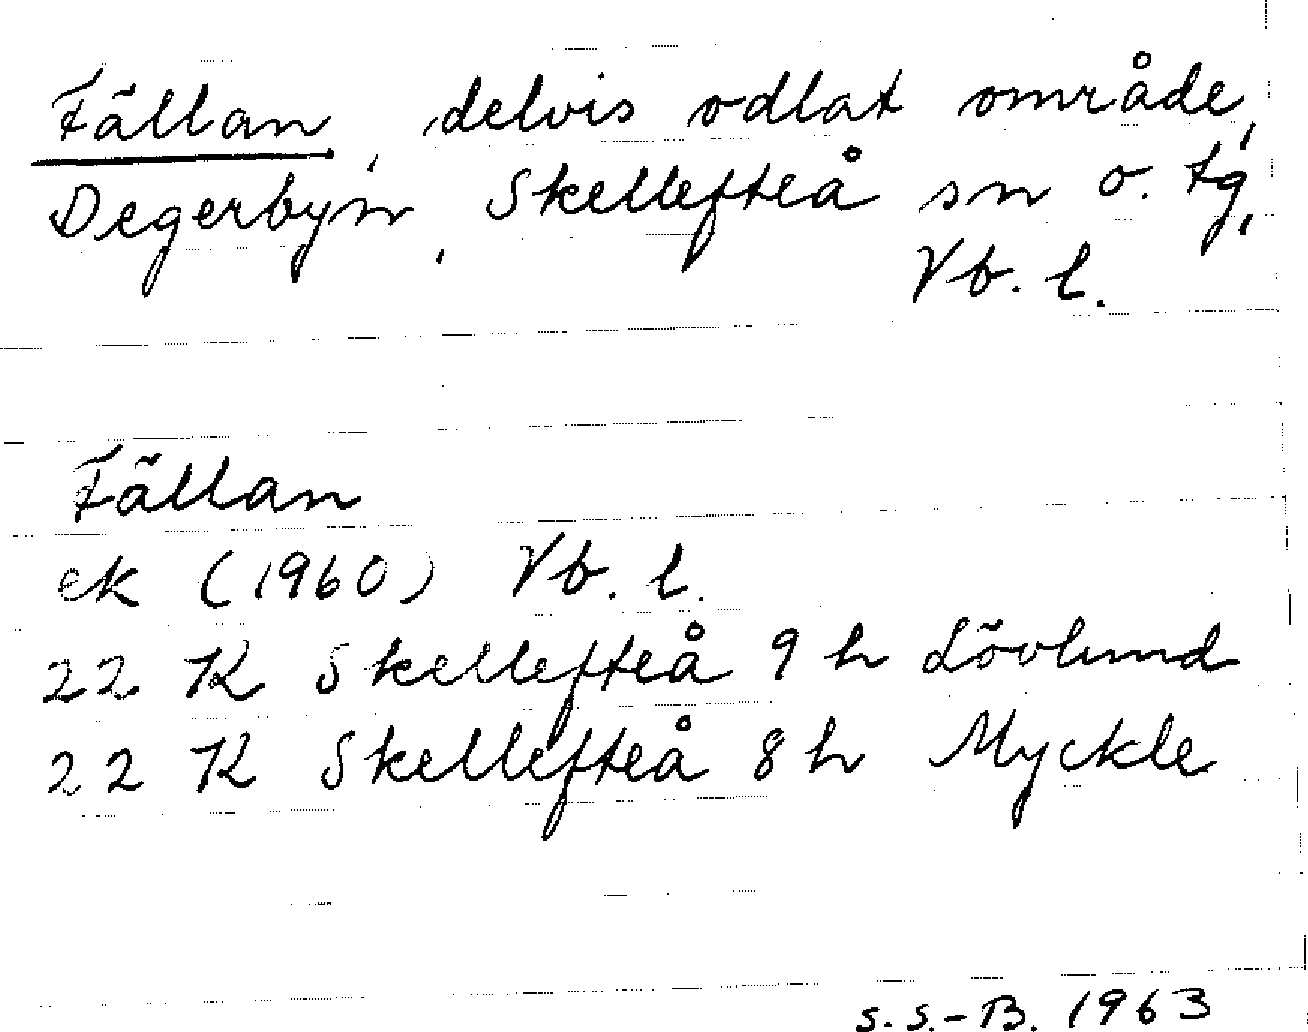 Fällan, delvis odlat område,
Degerbyn, Skellefteå sn o. tg,
Vb. l.
Fällan
ek (1960) Vb. l.
22 K Skellefteå 9 h Lövlund
22 K Skellefteå 8 h Myckle
S.S.-B. 1963